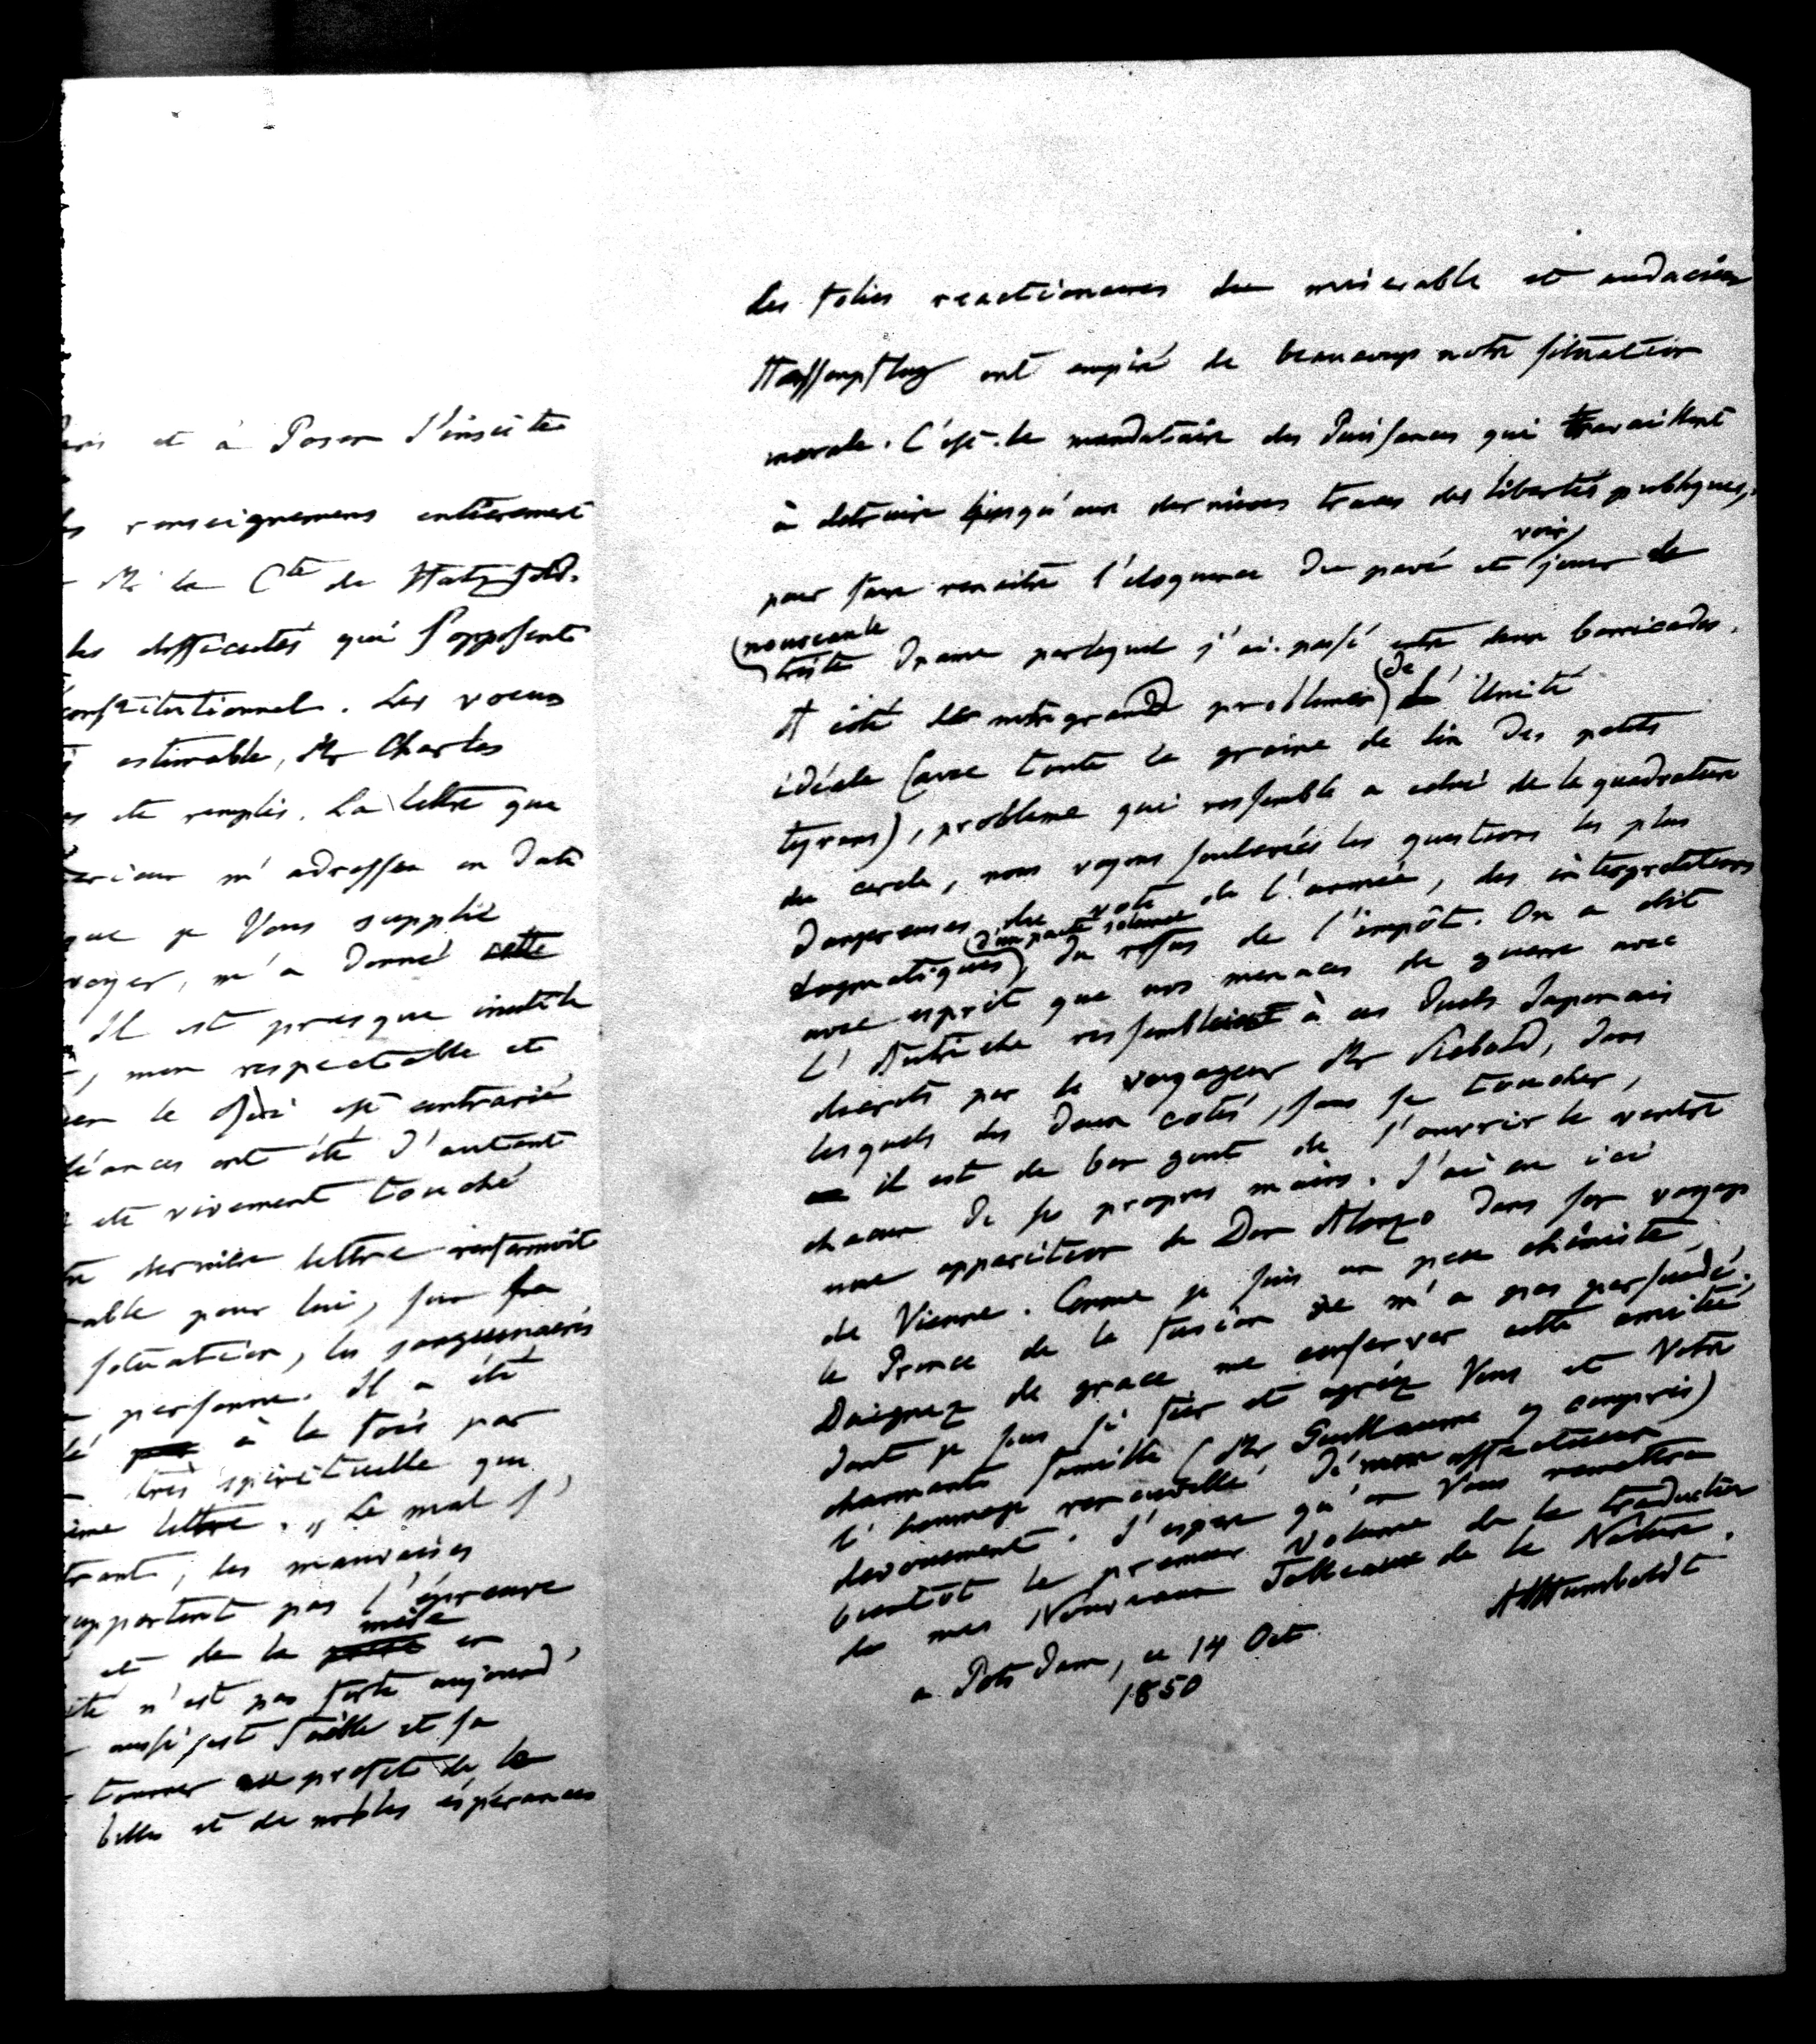 et à Posen d'insister
renseignemens entièrement
Mr le Cte de Hatzfeld.
les difficultés qui s'opposent
constitutionnel. Les voeux
estimable, Mr Charles
ete remplis. La lettre que
m'adresser en date
que je Vous supplie
m'a donné cette
Il est presque inutile
, mon respectable et
le est contrarié
ont été d'autant
ete vivement touché
derniere lettre renfermoit
pour lui, sur sa
situation, les
personne. Il a été
à la fois par
très spirituelle que
lettre. „Le mal s'
, les mauvaises
pas l'épreuve
et de la en
n'est pas forte aujourd'
aussi juste et sa
tourner au profit de la
belles et de nobles espérances
les folies reactionaires du miserable et audacieux
Hassenpflug ont empiré de beaucoup notre situation
morale. C'est le mandataire des Puissances qui travaillent
à detruire jusqu'aux dernieres traces des libertés publiques,
pour faire renaitre l'eloquence du pavé et voir jouer le
nouveau
triste Drame par lequel j'ai passé entre deux barricades.
A coté de notre grand probleme de l'Unité
idéale (avec toute la graine de lin des petits
tyrans), probleme qui ressemble a celui de la quadrature
du cercle, nous voyons soulevées les questions les plus
dangereuses du vote de l'armée, des interpretations
dogmatiques d'un pacte solennel, du refus de l'impôt. On a dit
avec esprit que nos menaces de guerre avec
l'Autriche ressemblaient à ces Duels Japonais
decrits par le voyageur Mr Siebold, dans
lesquels des deux cotés, sans se toucher,
il est de bon gout de s'ouvrir le ventre
chacun de ses propres mains. J'ai eu ici
une apparition de Don Alonzo dans son voyage
de Vienne. Comme je suis un peu chimiste,
le Prince de la fusion ne m'a pas persuadé.
Daignez de grace me conserver cette amitié
dont je suis si fier et agréez Vous et Votre
charmante famille (Mr Guillaume y compris)
l'hommage renouvellé de mon affectueux
devouement. J'espere qu'on Vous remettra
bientot le premier volume de la traduction
de mes Nouveaux Tableaux de la Nature.
AlHumboldt
a Potsdam, ce 14 Oct
1850